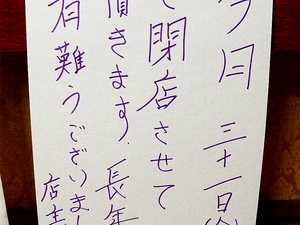 今月三十一日
で閉店させて
頂きます。長年
有難うございまし
店主